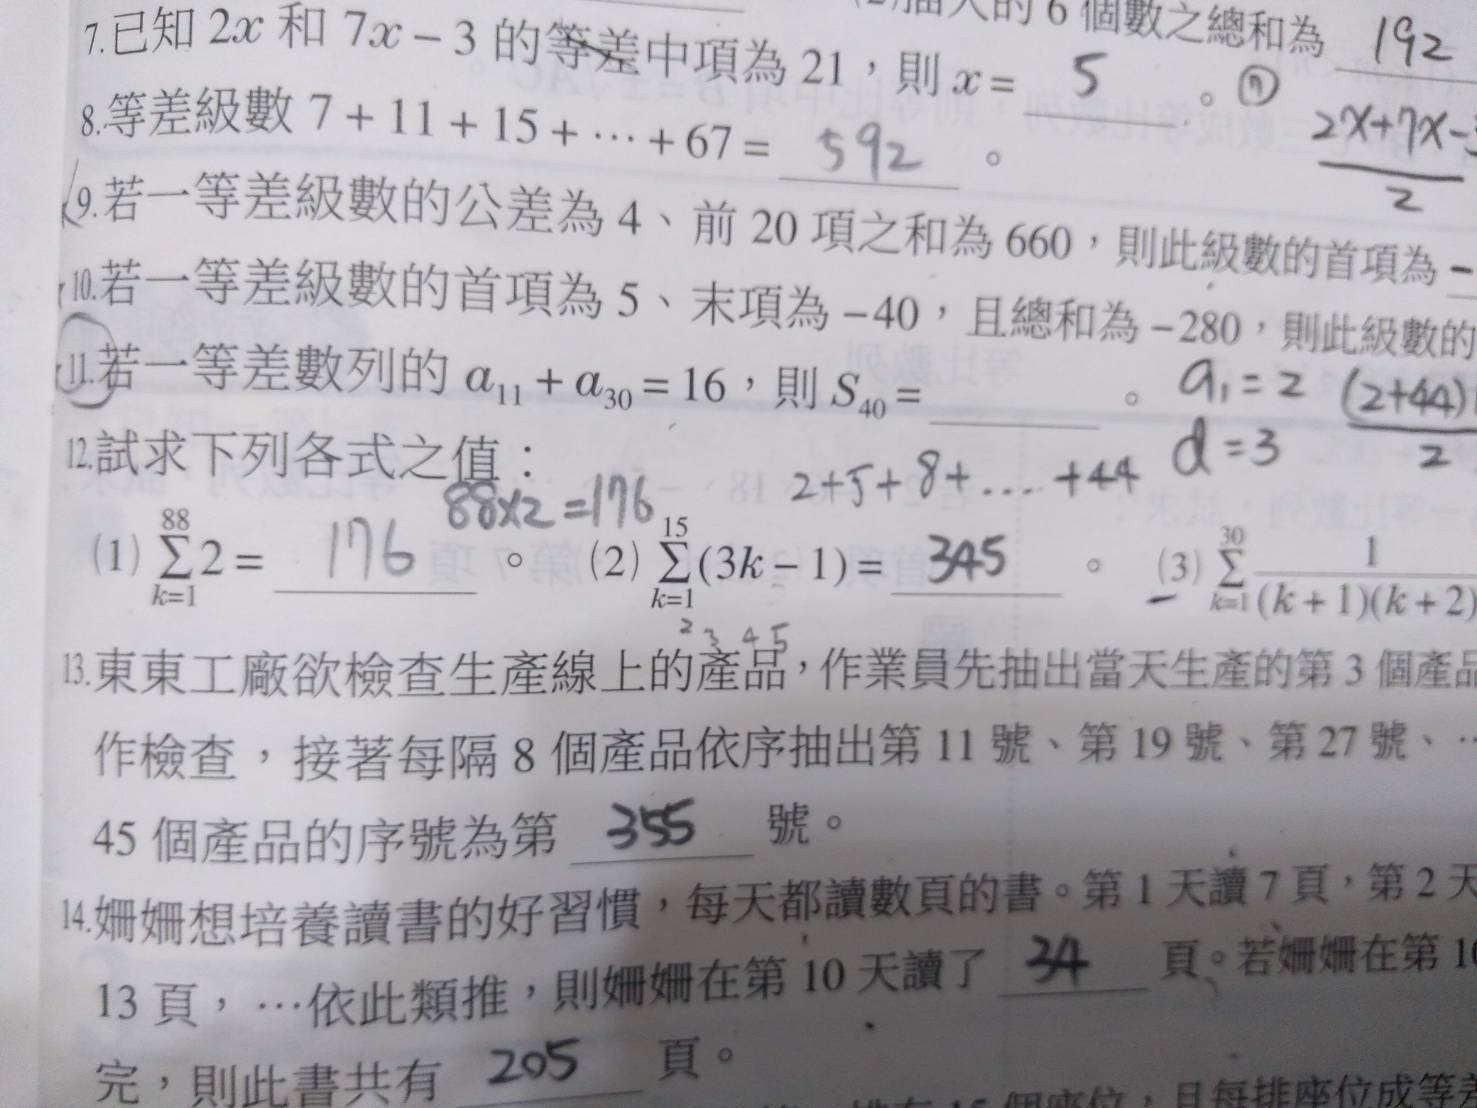 6 個數之總和為 192
7.已知 2x 和 7x − 3 的等差中項為 21,則 x = 5 。
8.等差級數 7 + 11 + 15 + ⋯ + 67 = 592 。
2x+7x-
2
9.若一等差級數的公差為 4、前 20 項之和為 660,則此級數的首項為
10.若一等差級數的首項為 5、末項為 −40,且總和為 −280,則此級數的
11.若一等差數列的 a₁₁ + a₃₀ = 16,則 S₄₀ = 。
a₁=2 (2+44)
2
d=3
12.試求下列各式之值:
88x2=176
2+5+8+....+44
(1) 88 Σ k=1 2 = 176 。 (2) 15 Σ k=1 (3k − 1) = 345 。 (3) 30 Σ k=1 1 (k + 1)(k + 2)
2 3 4 5
13.東東工廠欲檢查生產線上的產品,作業員先抽出當天生產的第 3 個產品
作檢查,接著每隔 8 個產品依序抽出第 11 號、第 19 號、第 27 號、⋯
45 個產品的序號為第 355 號。
14.姍姍想培養讀書的好習慣,每天都讀數頁的書。第 1 天讀 7 頁,第 2 天
13 頁,⋯依此類推,則姍姍在第 10 天讀了 34 頁。若姍姍在第 10
完,則此書共有 205 頁。
15 個座位,且每排座位成等差